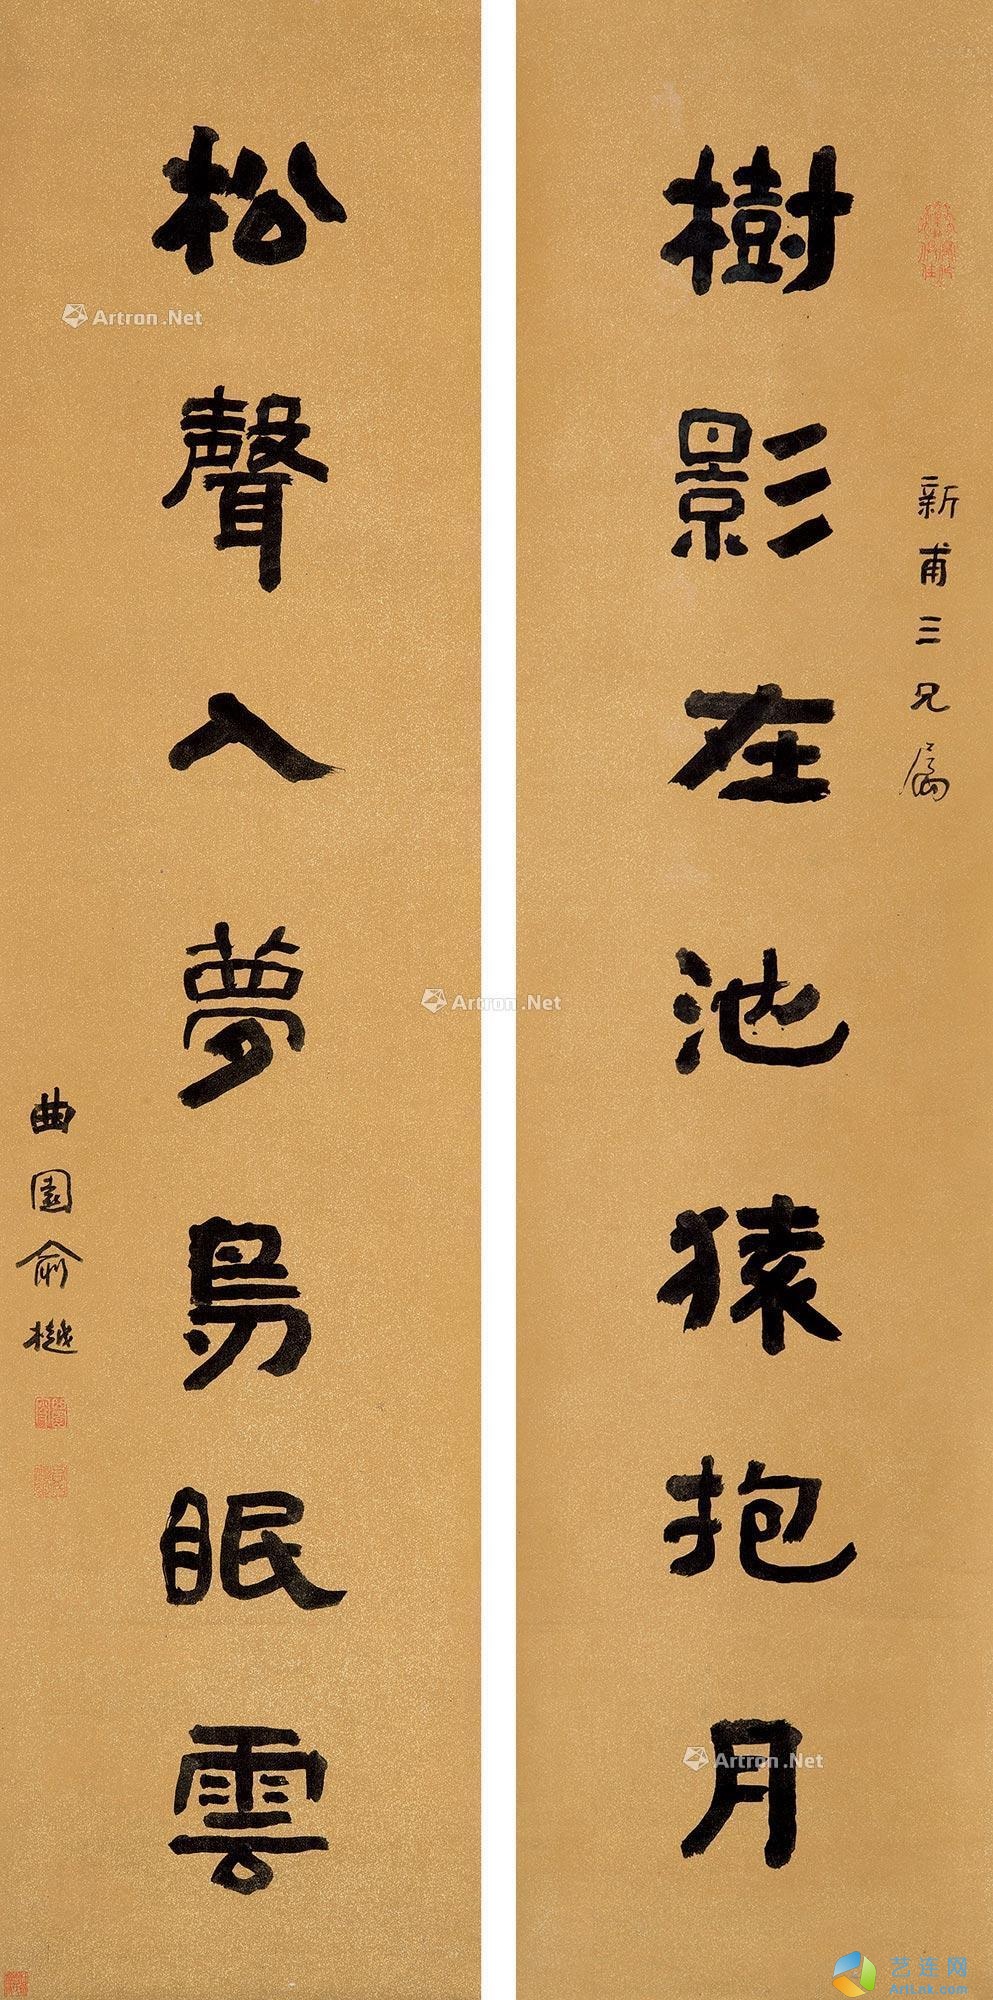 樹影在池猿抱月
新甫三兄屬
松聲入夢鳥眠雲
曲園俞樾
Artron.Net
Artron.Net
Artron.Net
艺连网
ArtLnk.com